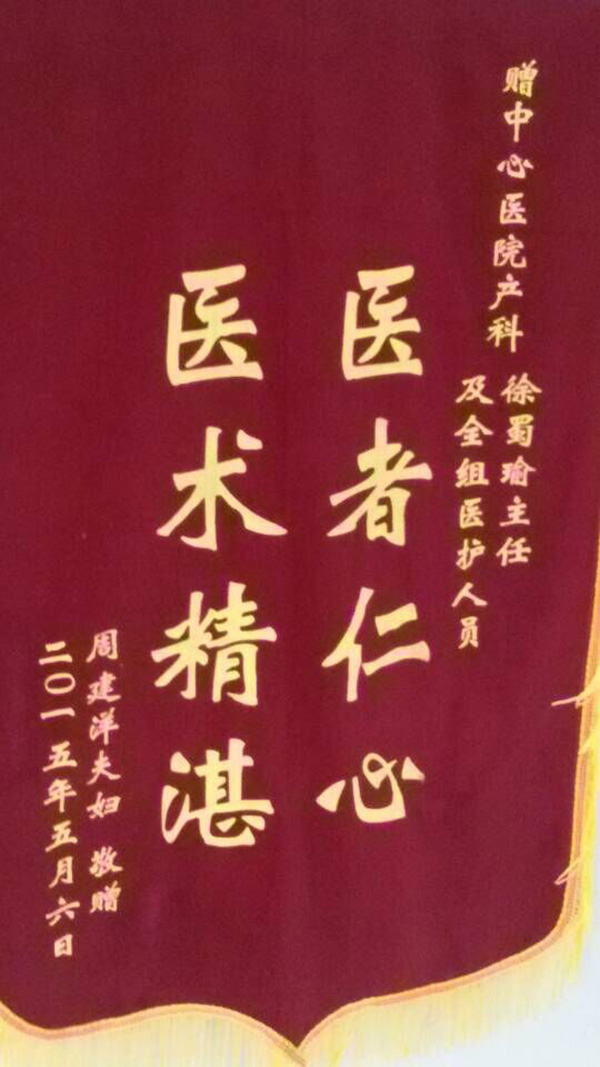 赠中心医院产科
徐蜀瑜主任
及全组医护人员
医者仁心
医术精湛
周建洋夫妇 敬赠
二〇一五年五月六日